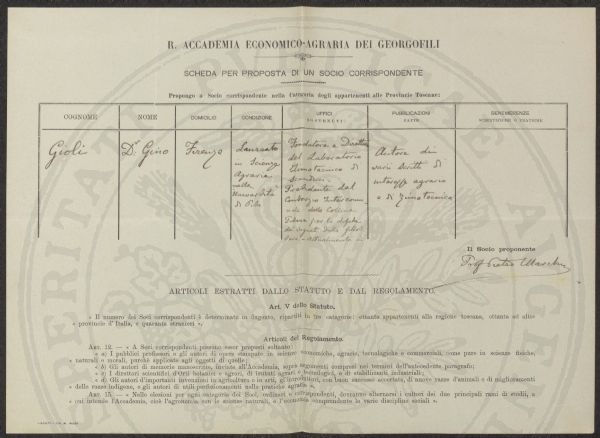 R. ACCADEMIA ECONOMICO-AGRARIA DEI GEORGOFILI
SCHEDA PER PROPOSTA DI UN SOCIO CORRISPONDENTE
Propongo a Socio corrispondente nella Categoria degli appartenenti alle Provincie Toscane:
COGNOME
NOME
DOMICILIO
CONDIZIONE
UFFICI
SOSTENUTI
PUBBLICAZIONI
FATTE
BENEMERENZE
SCIENTIFICHE O PRATICHE
Gioli
Dr. Gino
Firenze
Laureato
in Scienze
Agrarie
nella
Università
di Pisa
Fondatore e Direttore
del Laboratorio
Zimotecnico di
Presidente del
Consorzio Intercomu-
nale delle Colline
Pisane per la difesa
dei vigneti dalla filos-
sera
Autore di
vari scritti di
interesse agrario
e di Zimotecnica
Il Socio proponente
Prof.
ARTICOLI ESTRATTI DALLO STATUTO E DAL REGOLAMENTO.
Art. V dello Statuto.
« Il numero dei Soci corrispondenti è determinato in dugento, ripartiti in tre categorie: ottanta appartenenti alla regione toscana, ottanta ad altre
« provincie d'Italia, e quaranta stranieri ».
Articoli del Regolamento.
ART. 12. — « A Soci corrispondenti possono esser proposti soltanto:
« a) I pubblici professori o gli autori di opere stampate in scienze economiche, agrarie, tecnologiche e commerciali, come pure in scienze fisiche,
« naturali o morali, purchè applicate agli oggetti di quelle;
« b) Gli autori di memorie manoscritte, inviate all'Accademia, sopra argomenti compresi nei termini dell'antecedente paragrafo;
« c) I direttori scientifici d'Orti botanici e agrari, di Istituti agrari e tecnologici, e di stabilimenti industriali;
« d) Gli autori d'importanti invenzioni in agricoltura e in arti, gl'introduttori, con buon successo accertato, di nuove razze d'animali e di miglioramenti
« delle razze indigene, e gli autori di utili perfezionamenti nella pratica agraria ».
ART. 15. — « Nelle elezioni per ogni categoria dei Soci, ordinari e corrispondenti, dovranno alternarsi i cultori dei due principali rami di studii, a
« cui intende l'Accademia, cioè l'Agronomia con le scienze naturali, e l'Economia comprendente le varie discipline sociali ».